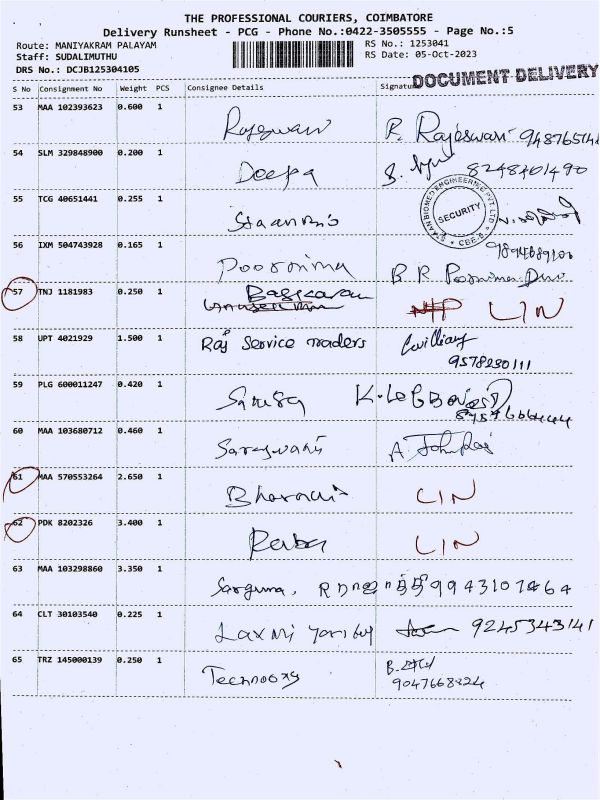 THE PROFESSIONAL COURIERS, COIMBATORE
Delivery Runsheet - PCG - Phone No.:0422-3505555 - Page No.:5
Route: MANIYAKRAM PALAYAM
RS No.: 1253041
Staff: SUDALIMUTHU
RS Date: 05-Oct-2023
DRS No.: DCJB125304105
DOCUMENT DELIVERY
S No Consignment No Weight PCS Consignee Details Signature
53 MAA 102393623 0.600 1 Rajeswari R. Rajeswari
54 SLM 329848900 0.200 1 Deepa 8248401490
55 TCG 40651441 0.255 1
SECURITY
56 IXM 504743928 0.165 1 Poornima B R Poornima Devi
57 TNJ 1181983 0.250 1 Baskaran LIN
58 UPT 4021929 1.500 1 Raj Service Traders
9578230111
59 PLG 600011247 0.420 1
60 MAA 103680712 0.460 1 Saraswathi A
61 MAA 570553264 2.650 1 LIN
62 PDK 8202326 3.400 1 LIN
63 MAA 103298860 3.350 1 Sarguna, 9943107464
64 CLT 30103540 0.225 1 Laxmi 9245343141
65 TRZ 145000139 0.250 1
9047668324